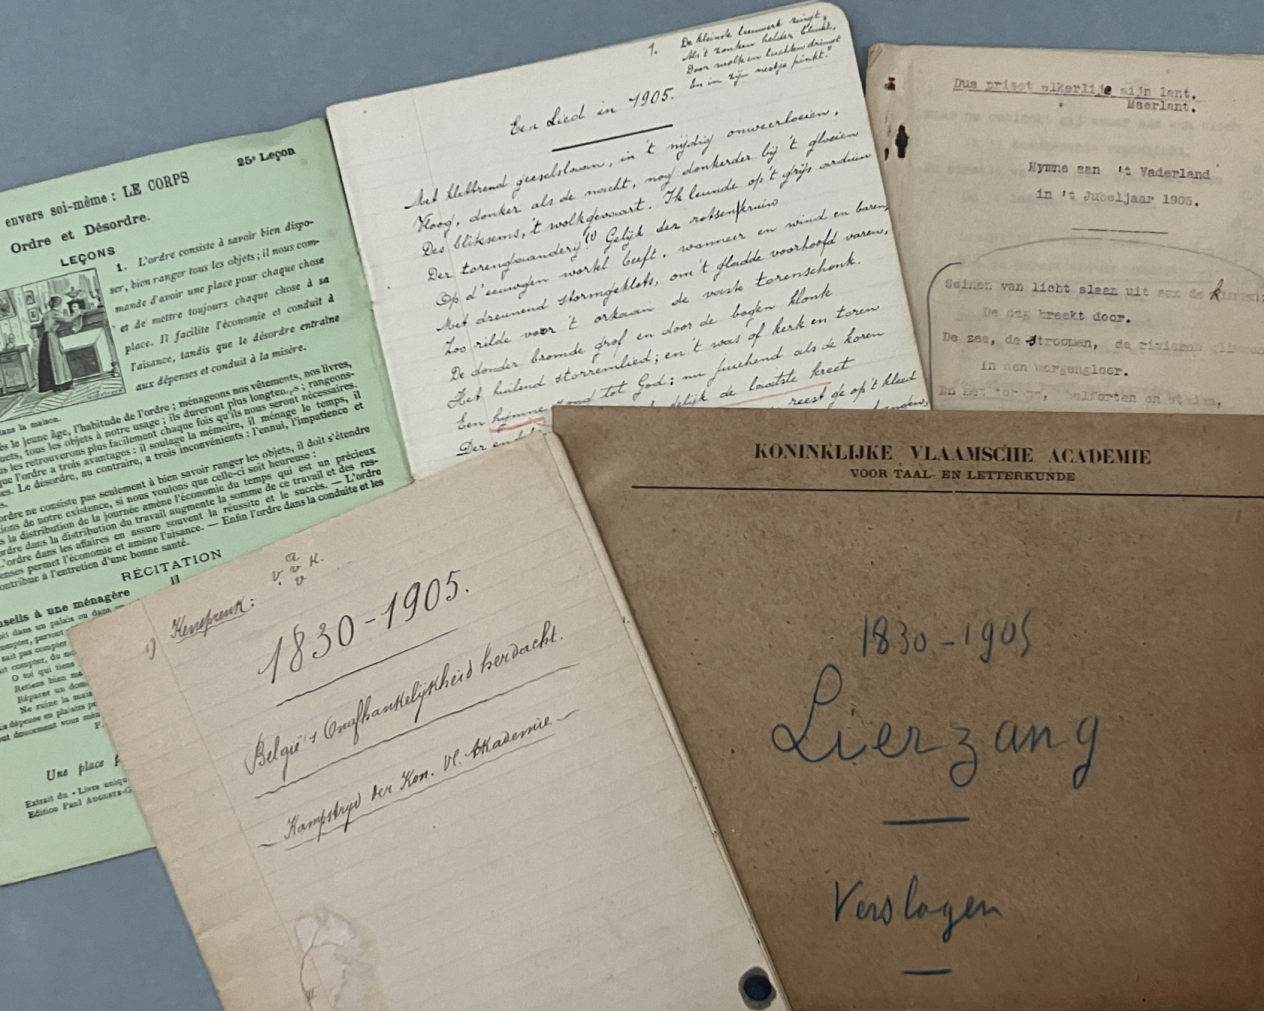 25e Leçon
envers soi-même : LE CORPS
Ordre et Désordre.
LEÇONS
1. L'ordre consiste à savoir bien dispo-
ser, bien ranger tous les objets ; il nous com-
mande d'avoir une place pour chaque chose
et de mettre toujours chaque chose à sa
place. Il facilite l'économie et conduit à
l'aisance, tandis que le désordre entraîne
aux dépenses et conduit à la misère.
dans la maison.
le jeune âge, l'habitude de l'ordre ; ménageons nos vêtements, nos livres,
tous les objets à notre usage ; ils dureront plus longtemps ; rangeons-
les retrouverons plus facilement chaque fois qu'ils nous seront nécessaires.
que l'ordre a trois avantages : il soulage la mémoire, il ménage le temps, il
Le désordre, au contraire, a trois inconvénients : l'ennui, l'impatience et
ordre ne consiste pas seulement à bien savoir ranger les objets, il doit s'étendre
de notre existence, si nous voulons que celle-ci soit heureuse :
la distribution de la journée amène l'économie du temps qui est un précieux
ordre dans la distribution du travail augmente la somme de ce travail et des res-
L'ordre dans les affaires en assure souvent la réussite et le succès. — L'ordre
penses permet l'économie et amène l'aisance. — Enfin l'ordre dans la conduite et les
contribue à l'entretien d'une bonne santé.
RÉCITATION
à une ménagère
dans un palais ou dans
pas compter
O toi qui tiens
Retiens bien
Réparer un
Ne ruine la
dépense en plaisirs
doucement vous
Une place
Extrait du « Livre unique
Edition Paul
1.
De kleinste leeuwerk zingt,
Als 't zonken helder blinkt,
Door wolk en luchten dringt
En in zijn nestje pinkt."
Een Lied in 1905.
Met klettrend geeselslaan, in 't nijdig onweerloeien,
Hoog, donker als de nacht, nog donkerder bij 't gloeien
Des bliksems, 't wolkgevaart. Ik leunde op 't grijs arduin
Der torengaanderij (1) Gelijk der rotsen kruin
Op d' eeuwgen wortel beeft, wanneer en wind en baren,
Met dreunend stormgeklots, om 't gladde voorhoofd varen,
Zoo rilde voor 't orkaan de vaste torenschonk.
De donder bromde grof en door de bogen klonk
Het huilend storremlied; en 't was of kerk en toren
Een hymne zond tot God; nu juichend als de koren
de laatste kreet
ge op 't kleed
Dus priset elkerlije sijn lant.
Maerlant.
Hymne aan 't Vaderland
in 't Jubeljaar 1905.
Seinen van licht slaan uit aan de
De dag breekt door.
De zee, de stroomen, de rivieren
in den morgengloor.
En het torpen, belforten en steden,
KONINKLIJKE VLAAMSCHE ACADEMIE
VOOR TAAL- EN LETTERKUNDE
1830-1905
Lierzang
Verslagen
a
v. v K.
v
1) Kenspreuk:
1830-1905.
België's Onafhankelijkheid herdacht.
— Kampstrijd der Kon. Vl. Akademie —